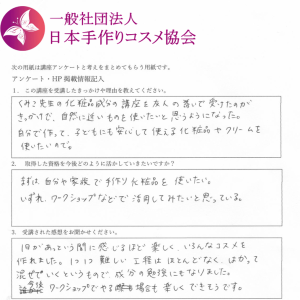 一般社団法人
日本手作りコスメ協会
次の用紙は講座アンケートと考えをまとめてもらう用紙です。
アンケート・HP掲載情報記入
1. この講座を受講したきっかけや理由を教えてください。
くみこ先生の化粧品成分の講座を友人の誘いで受けたのが
きっかけで、自然に近いものを使いたいと思うようになった。
自分で作って、子どもにも安心して使える化粧品やクリームを
使いたいので。
2. 取得した資格を今後どのように活かしていきたいですか?
まずは自分や家族で手作り化粧品を使いたい。
いずれ、ワークショップなどで活用してみたいと思っている。
3. 受講された感想をお聞かせください。
1日があっという間に感じるほど楽しく、いろんなコスメを
作れました。1つ1つ難しい工程はほとんどなく、はかって
混ぜていくというもので成分の勉強にもなりました。
今後ワークショップでやる場合も楽しくできそうです。